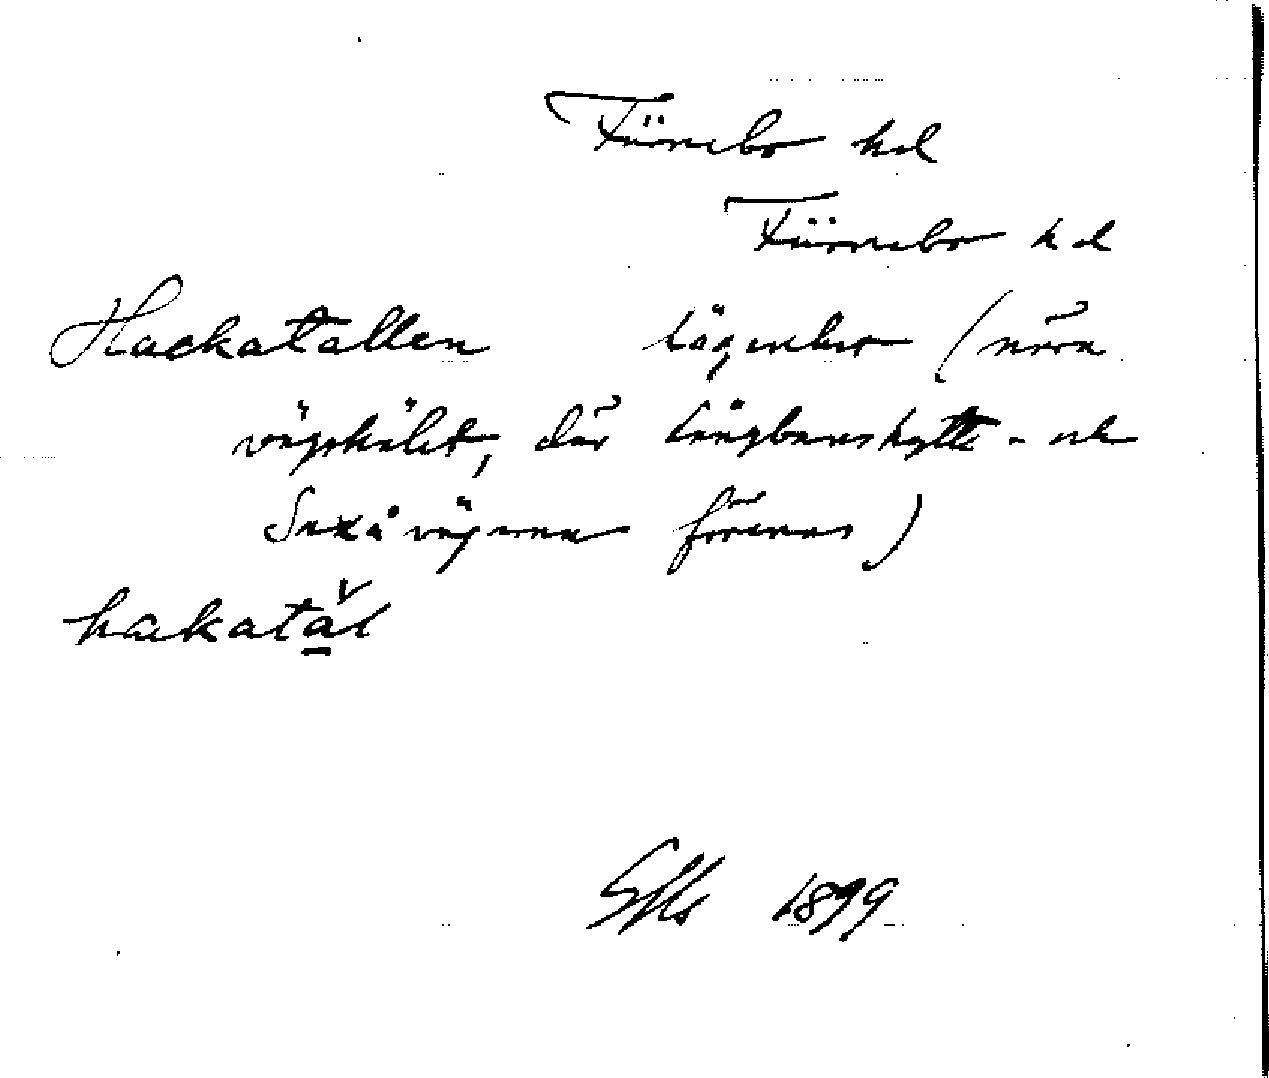 Färnebo hd
Färnebo hd
Hackatallen lägenhet (nära
vägskälet, där Långbanshytte- och
Saxåvägarna förenas)
hakatăl
1899